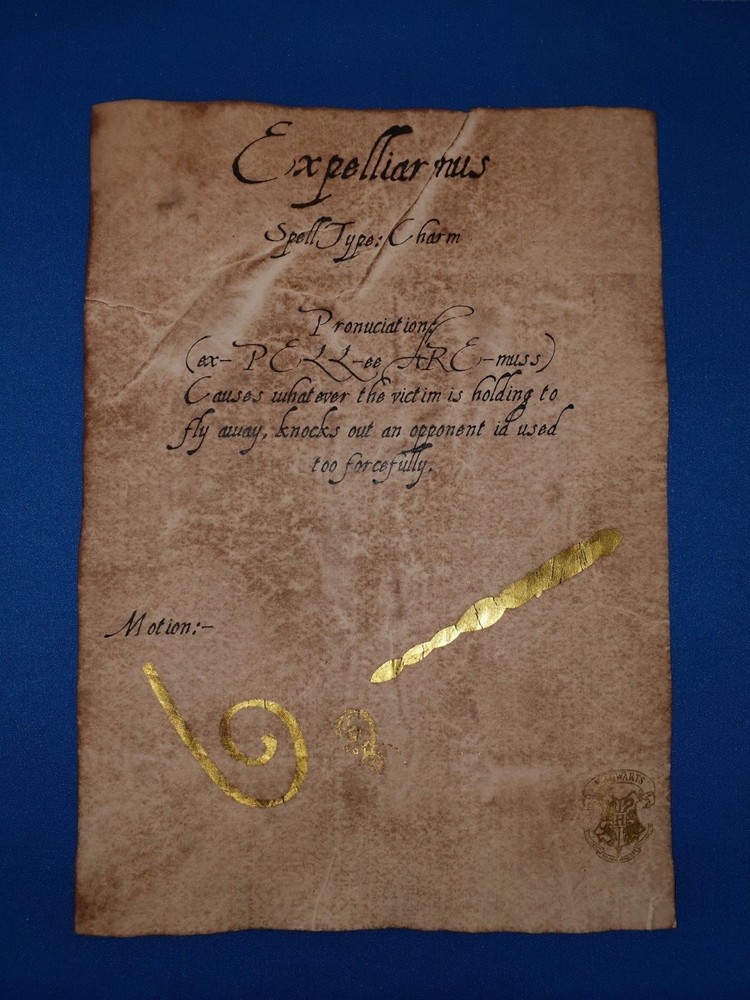 Expelliarmus
Spell Type: Charm
Pronuciation:
(ex-PELL-ee ARE-muss)
Causes whatever the victim is holding to
fly away, knocks out an opponent id used
too forcefully.
Motion:-
HOGWARTS
H